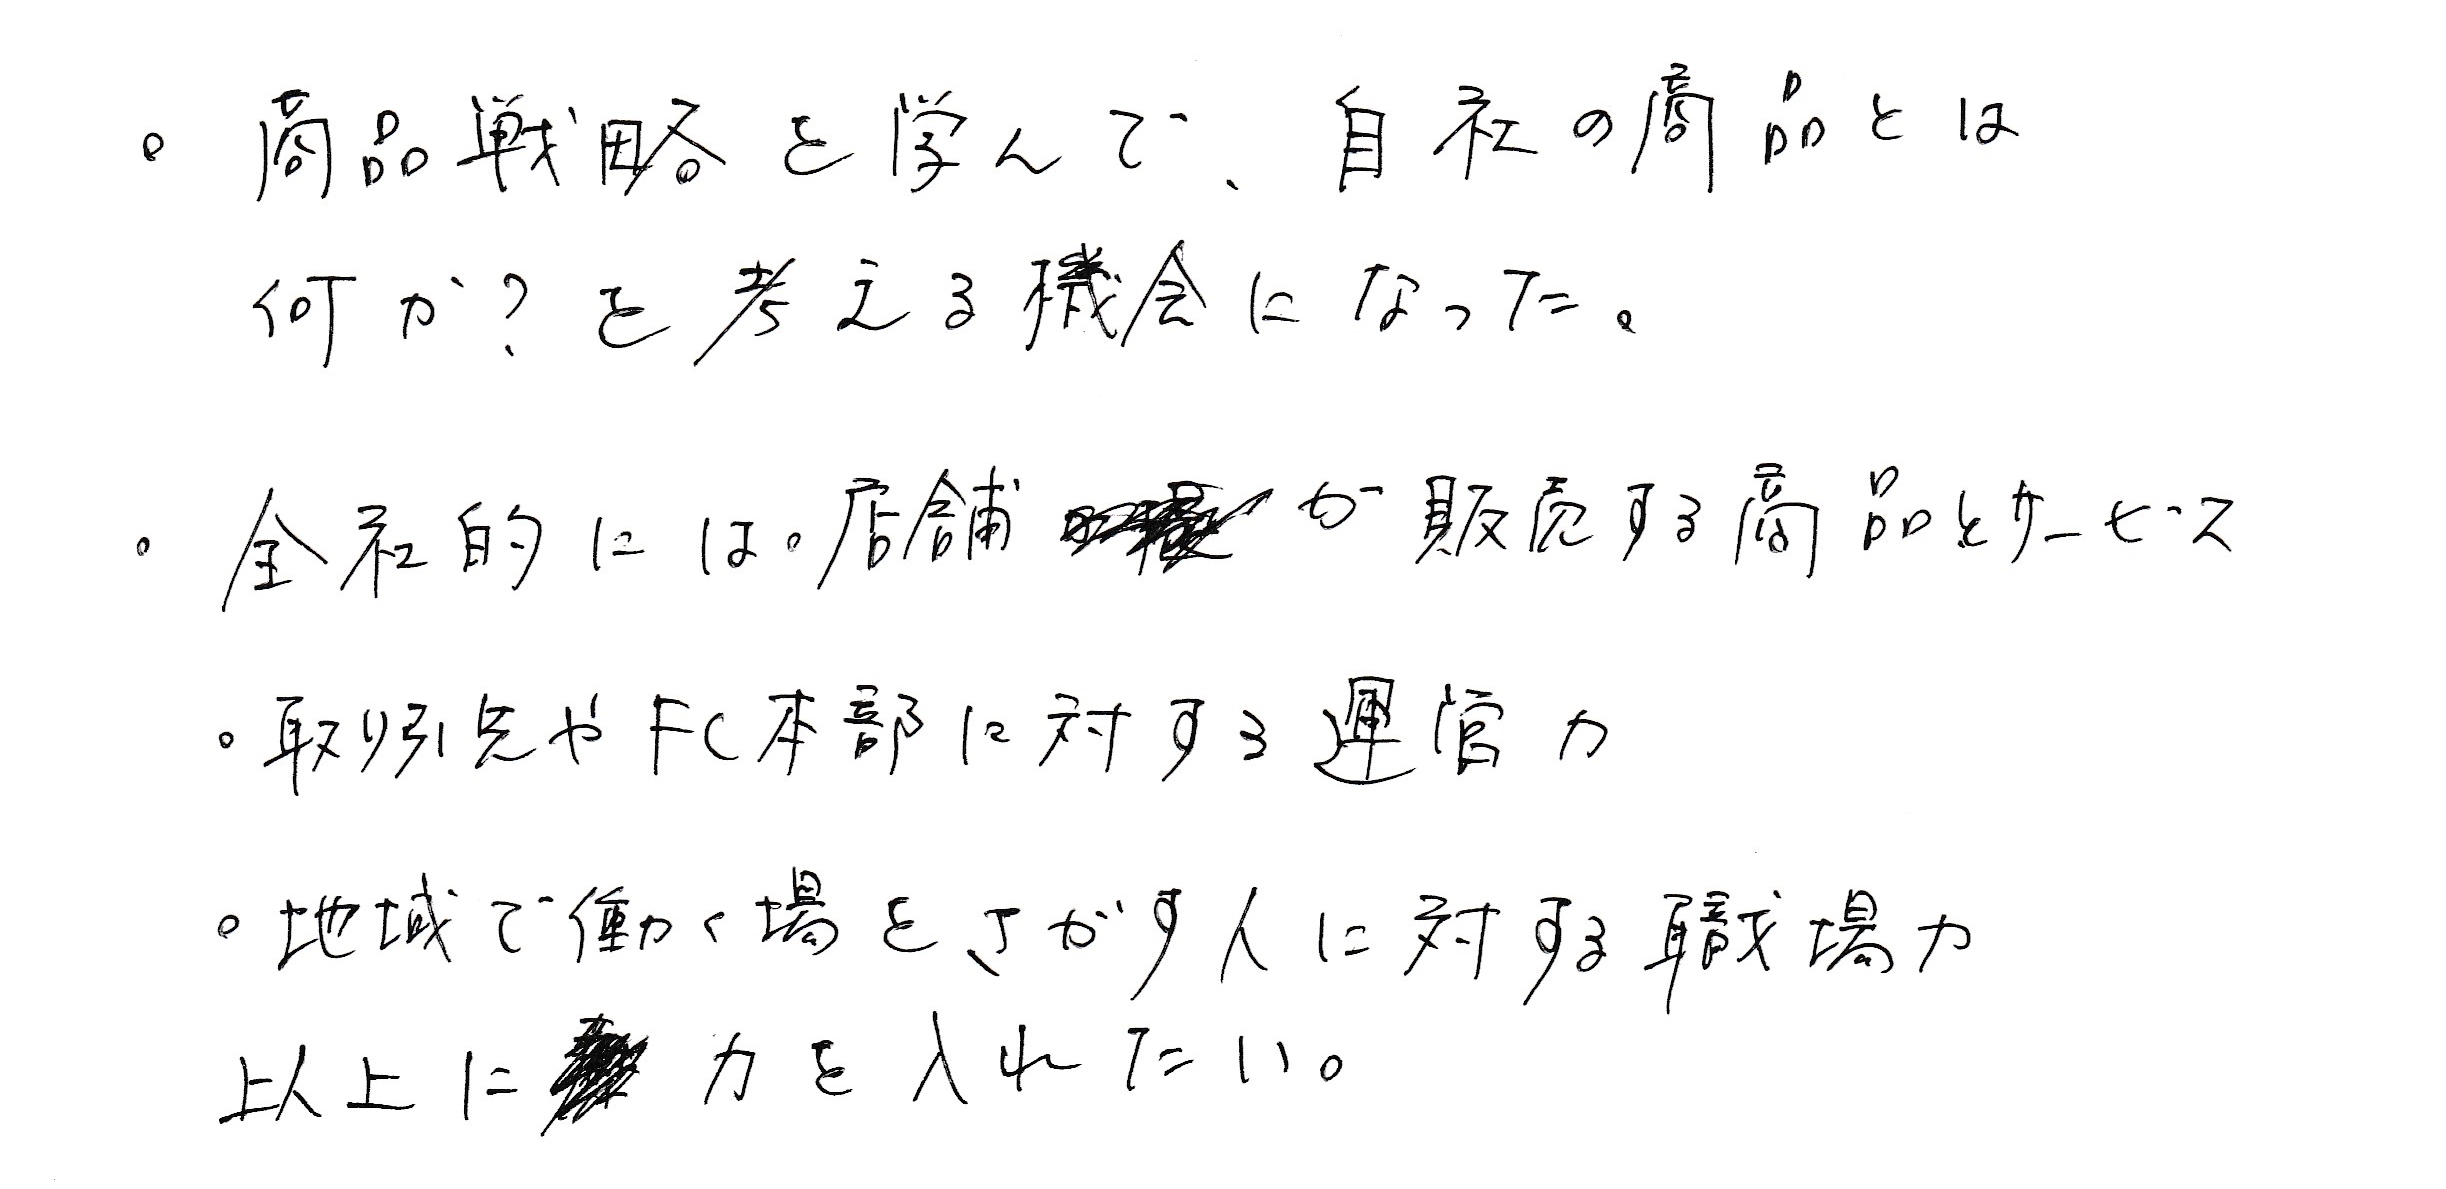 。商品戦略を学んで、自社の商品とは
何か?を考える機会になった。
。全社的には。店舗が販売する商品とサービス
。取引先やFC本部に対する運営力
。地域で働く場をさがす人に対する職場力
以上に力を入れたい。